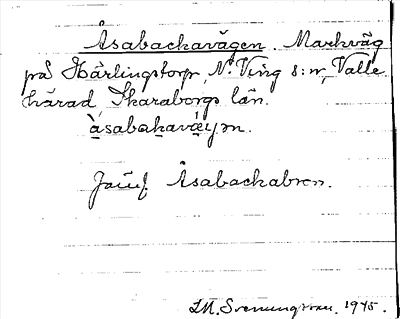 Åsabackavägen. Markväg
på Härlingstorp, N. Ving s:n, Valle
härad, Skaraborgs län.
Jämf. Åsabackabron.
J.M. Svenungsson. 1945.